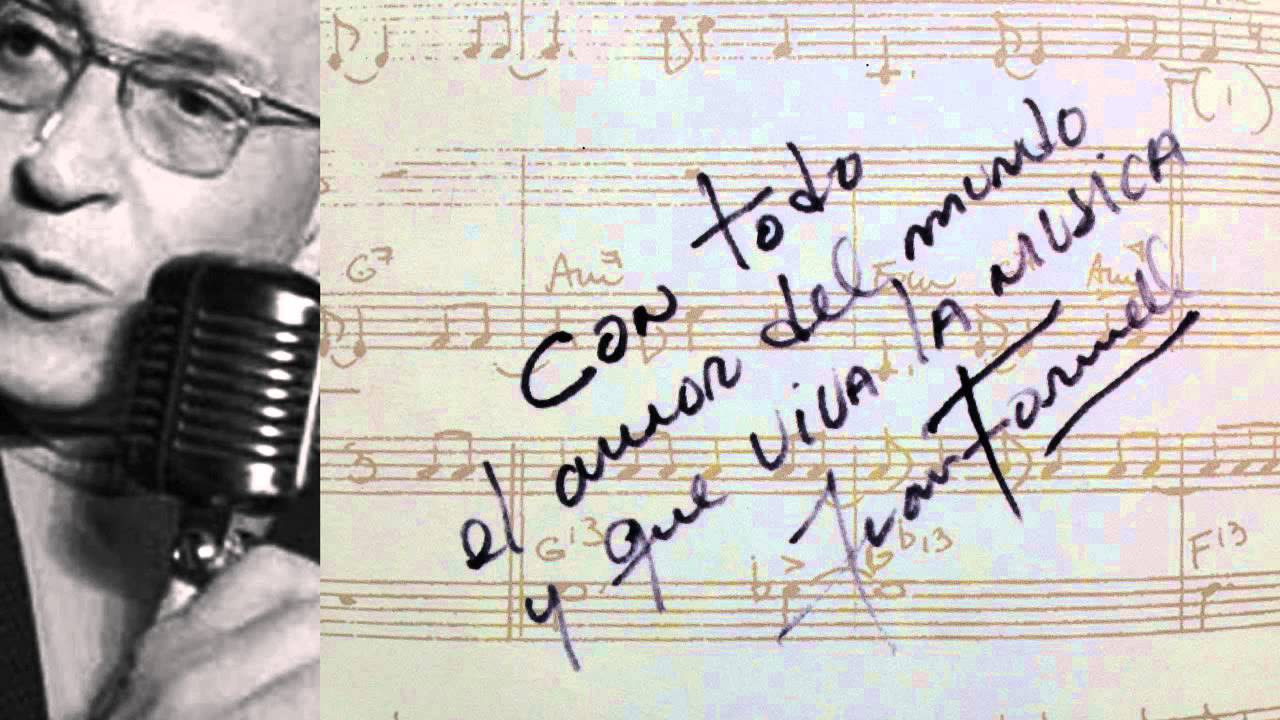 (1)
G7 Am7 Fm Am7
con todo
el amor del mundo
y que viva la MUSICA
Juan Formell
G13 Bb13 F13